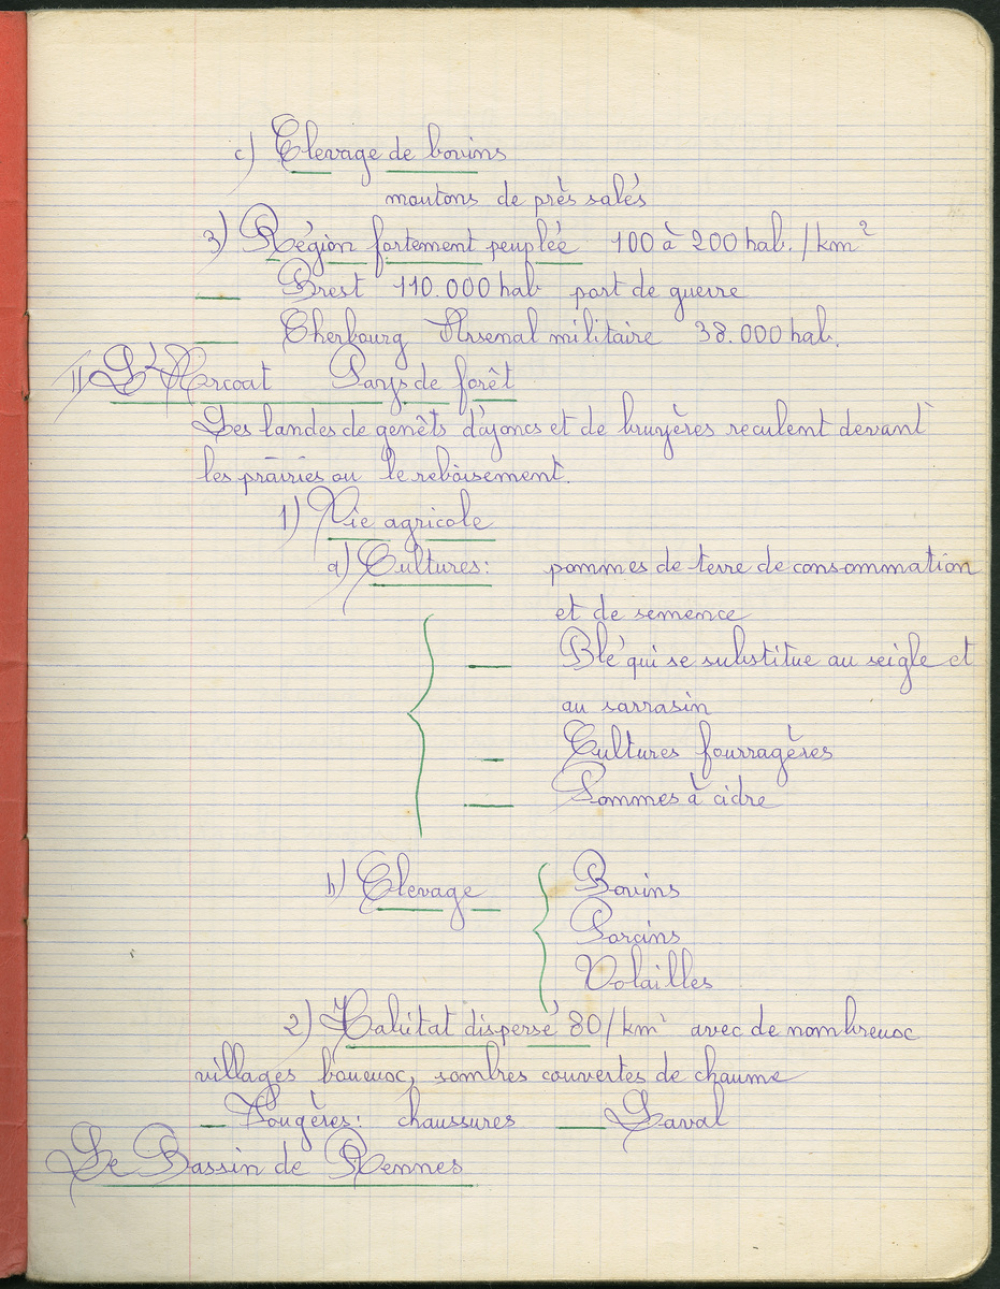 c) Elevage de bovins
moutons de près salés
3) Région fortement peuplée 100 à 200 hab. / km²
Brest 110.000 hab port de guerre
Cherbourg Arsenal militaire 38.000 hab.
II L'Arcoat Pays de forêt
Les landes de genêts d'ajoncs et de bruyères reculent devant
les prairies ou le reboisement.
1) Vie agricole
a) Cultures : pommes de terre de consommation
et de semence
— Blé qui se substitue au seigle et
au sarrasin
— Cultures fourragères
— Pommes à cidre
b) Elevage — Bovins
Porcins
Volailles
2) Habitat dispersé 80/km² avec de nombreux
villages boueux, sombres couvertes de chaume
— Fougères : chaussures — Laval
Le Bassin de Rennes